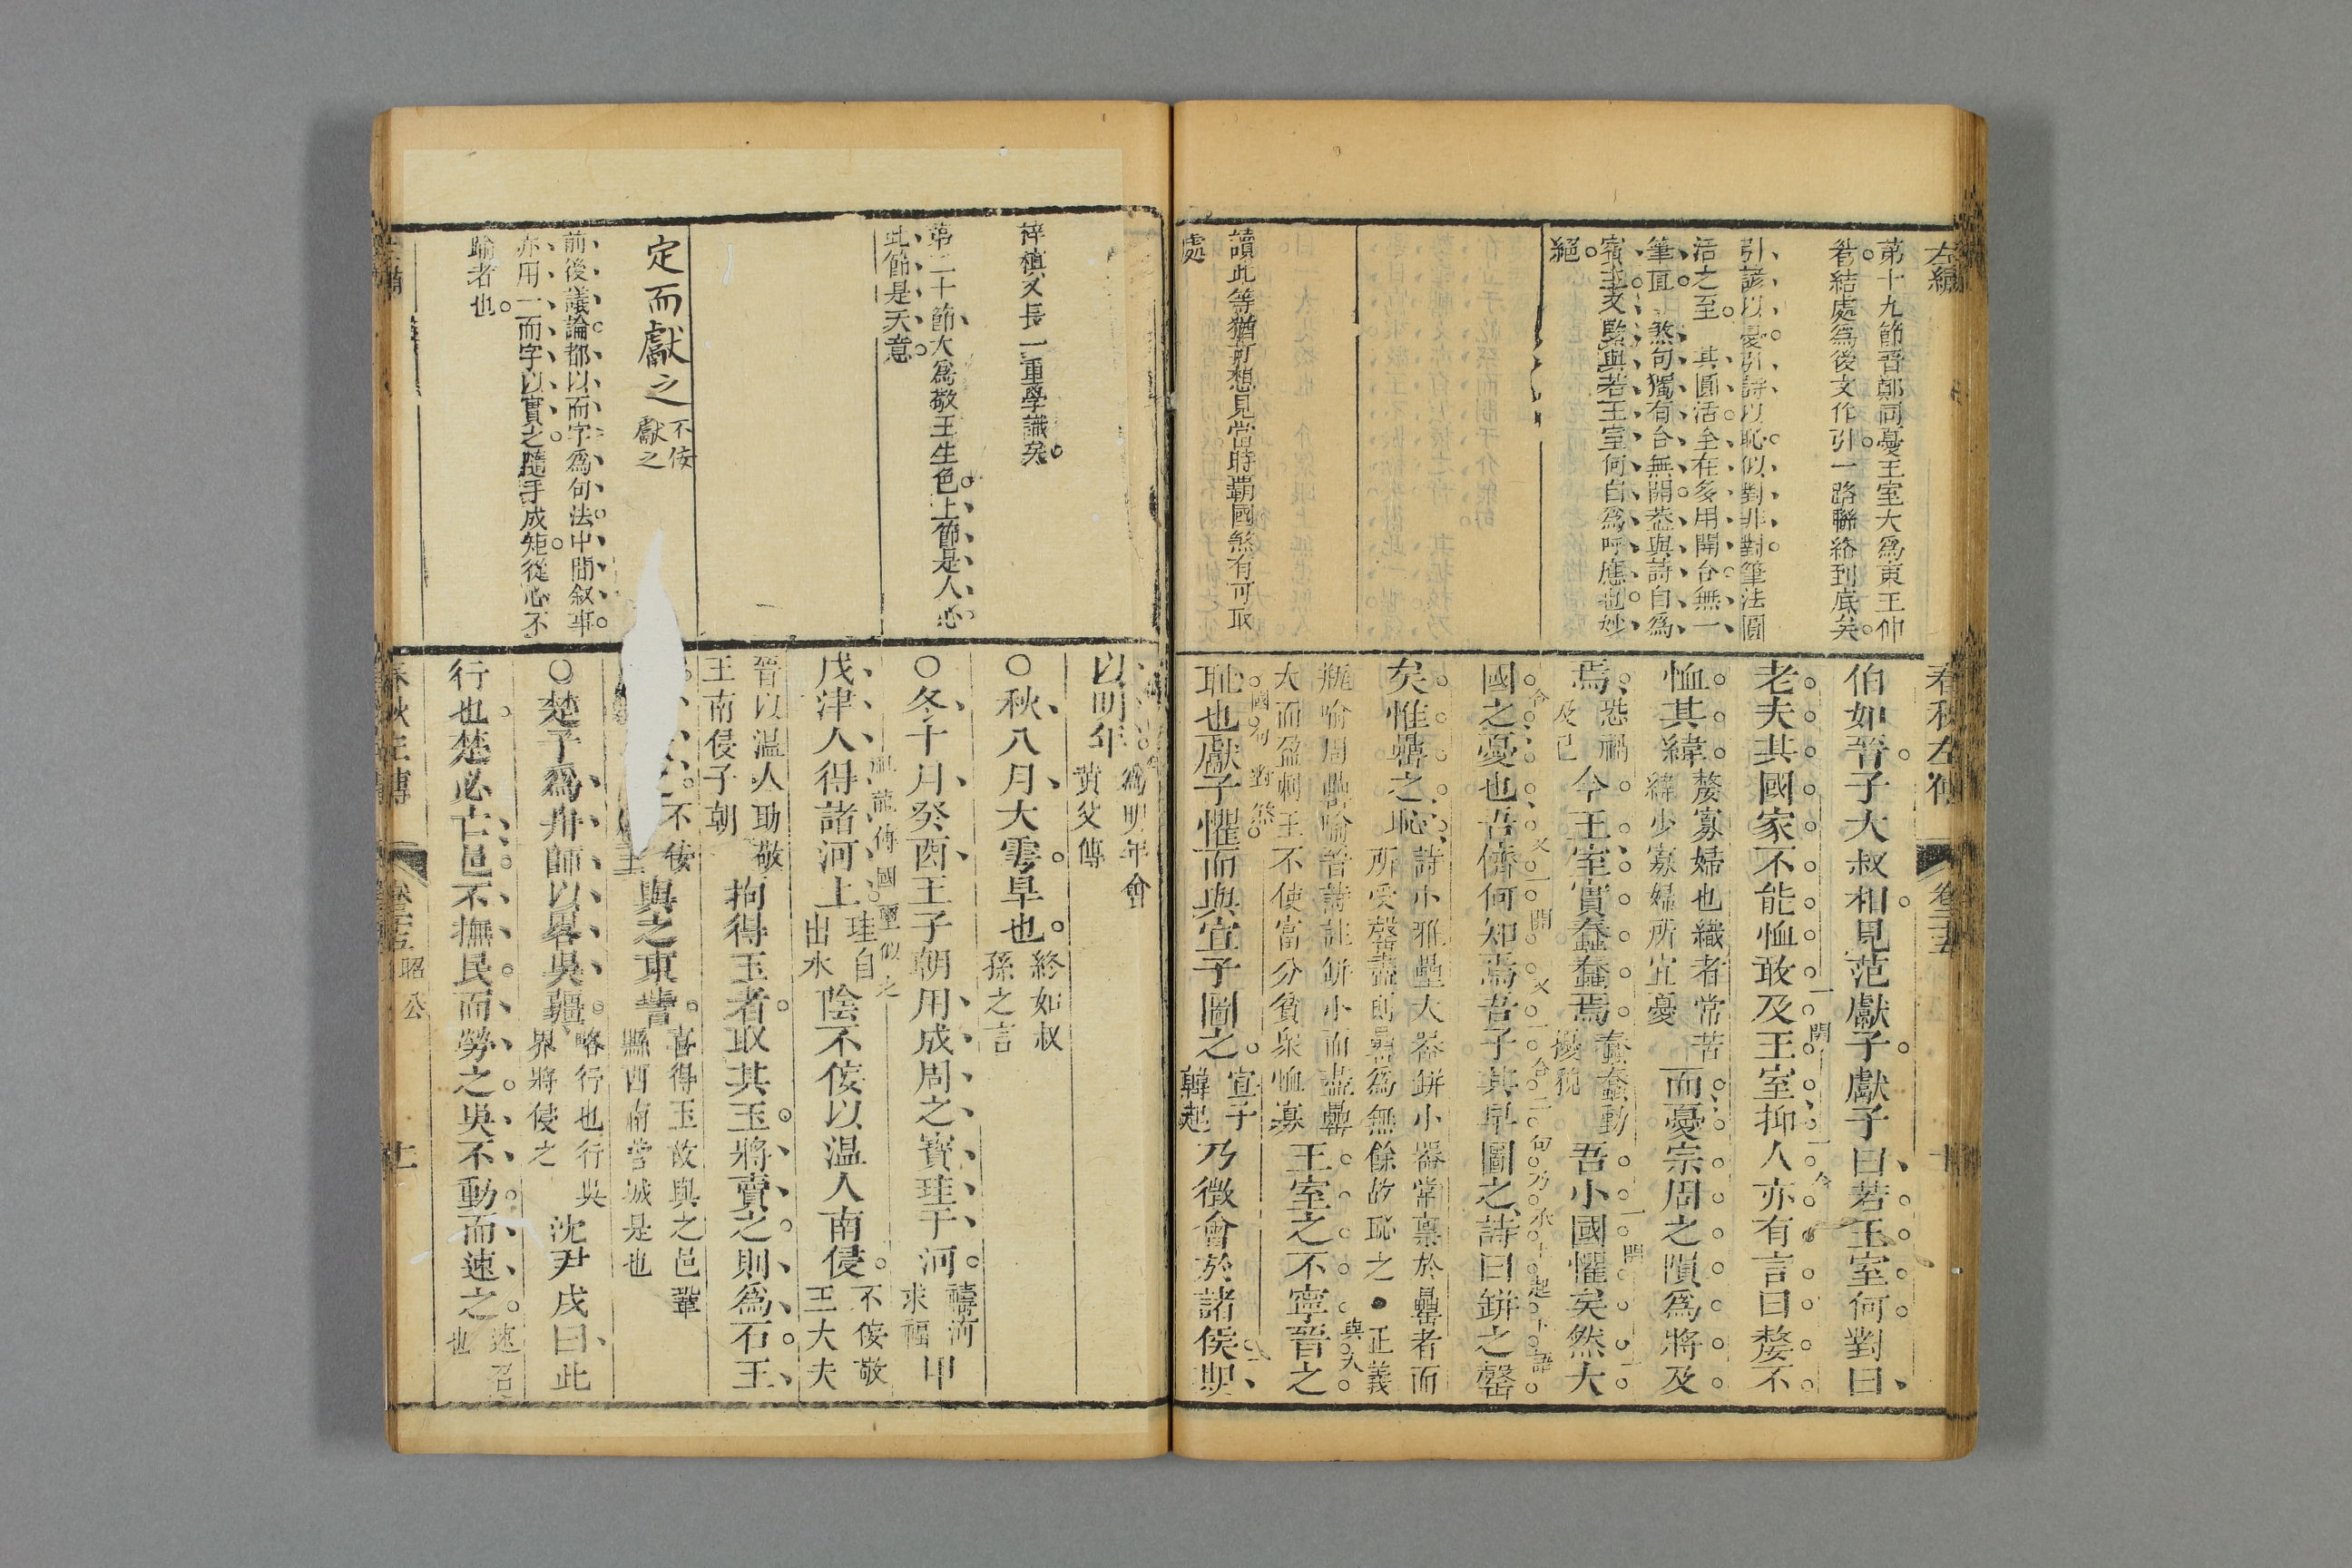 左繡
第十九節晉鄭同憂王室大爲東王仲
春秋左傳
卷二十五
十
伯如晉子大叔相見范獻子獻子曰若王室何對曰
老夫其國家不能恤敢及王室抑人亦有言曰嫠不
恤其緯
嫠寡婦也織者常苦
緯少寡婦所宜憂
而憂宗周之隕爲將及
焉
恐禍
及己
今王室實蠢蠢焉
蠢蠢動
擾貌
吾小國懼矣然大
國之憂也吾儕何知焉吾子其早圖之詩曰缾之罄
矣惟罍之恥
詩小雅罍大器缾小器常稟於罍者而
所受罄盡則罍爲無餘故恥之●正義
瓶喻周罍喻晉詩註缾小而盡罍
大而盈刺王不使富分貧衆恤寡
王室之不寧晉之
恥也獻子懼而與宣子圖之
宣子
韓起
乃徵會於諸侯期
結處爲後文作引一路聯絡到底矣
引諺以憂引詩以恥似對非對筆法圓
活之至 其圓活全在多用開合無一
筆直 煞句獨有合無開蓋與詩自爲
賓主又緊與若王室何自爲呼應也妙
絕
讀此等猶可想見當時霸國煞有可取
處
以明年
爲明年會
黄父傳
○秋八月大雩旱也
終如叔
孫之言
○冬十月癸酉王子朝用成周之寶珪于河
禱河
求福
甲
戌津人得諸河上
珪自
出水
陰不佞以温人南侵
不佞敬
王大夫
晉以温人助敬
王南侵子朝
拘得玉者取其玉將賣之則爲石王
不佞
與之東訾
喜得玉故與之邑鞏
縣西南訾城是也
○楚子爲舟師以畧吳疆
略行也行吳
界將侵之
沈尹戌曰此
行也楚必亡邑不撫民而勞之吳不動而速之
速召
也
梓愼又長一重學識矣
第二十節大爲敬王生色上節是人心
此節是天意
定而獻之
不佞
獻之
前後議論都以而字爲句法中間叙事
亦用一而字以實之隨手成矩從心不
踰者也
春秋左傳
昭公
十一